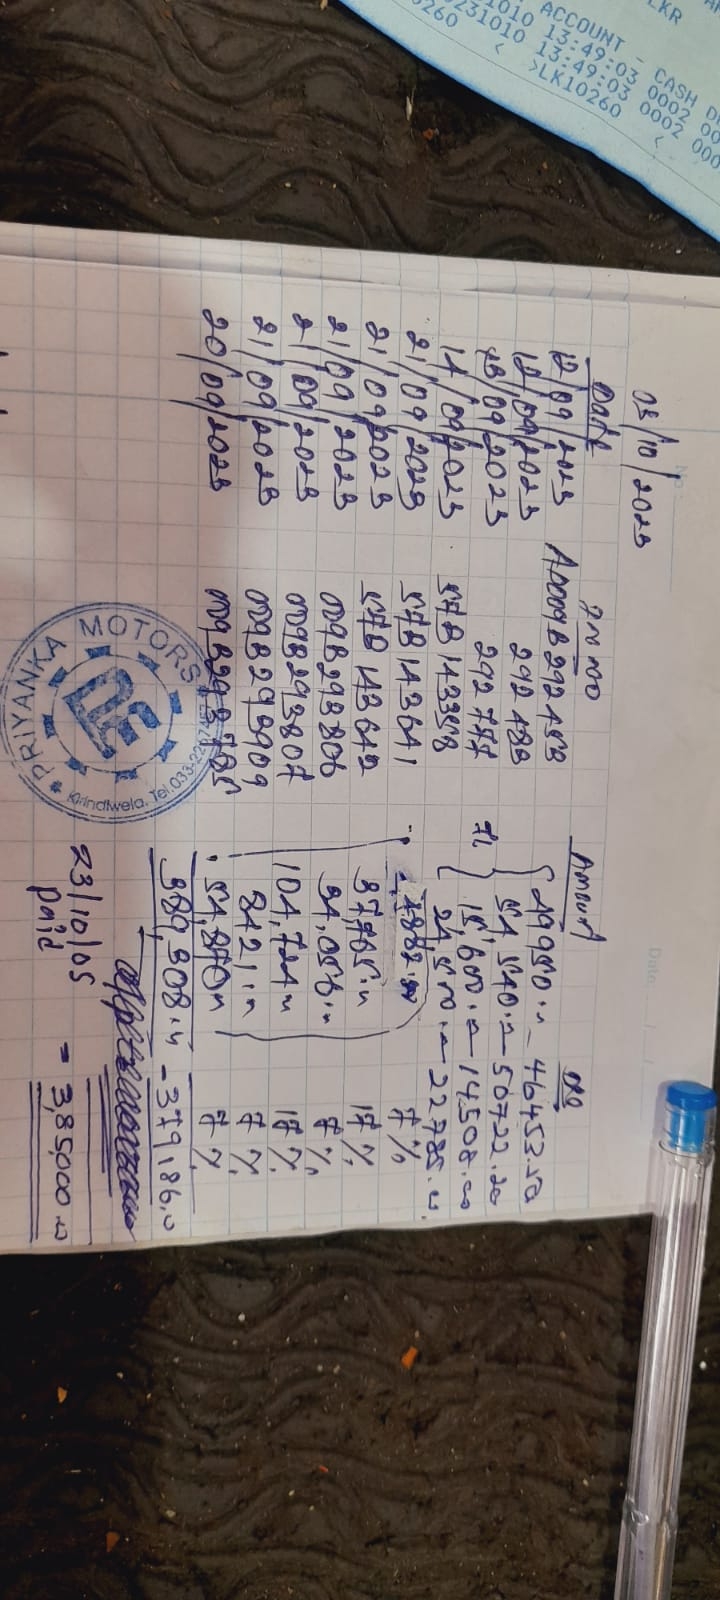 ACCOUNT - CASH
1010 13:49:03 0002
231010 13:49:03 0002 000
>LK10260 <
03/10/2023
Date Amount
12/09/2023 A0009B292453 49950 - 46453.50
12/09/2023 292483 54,540 - 50722.20
13/09/2023 292777 15,600 - 14,508.00
14/09/2023 57B 143358 24,500 - 22785.00
21/09/2023 57B 143641 7%
21/09/2023 57B 143642 37,765 17%
21/09/2023 009B293806 34,058 7%
21/09/2023 009B293807 104,724 17%
21/09/2023 009B293909 8421 7%
20/09/2023 009B293785 54,870 7%
389,808 - 379186.00
23/10/05
paid = 3,85,000.00
PRIYANKA MOTORS
Kirindiwela. Tel.033-22